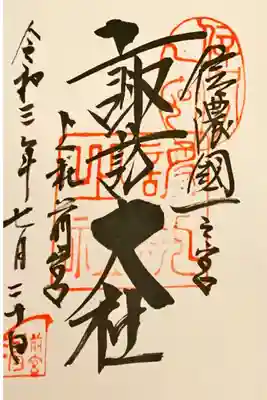 信濃國一之宮
諏訪大社
上社前宮
令和三年七月二十日
前宮